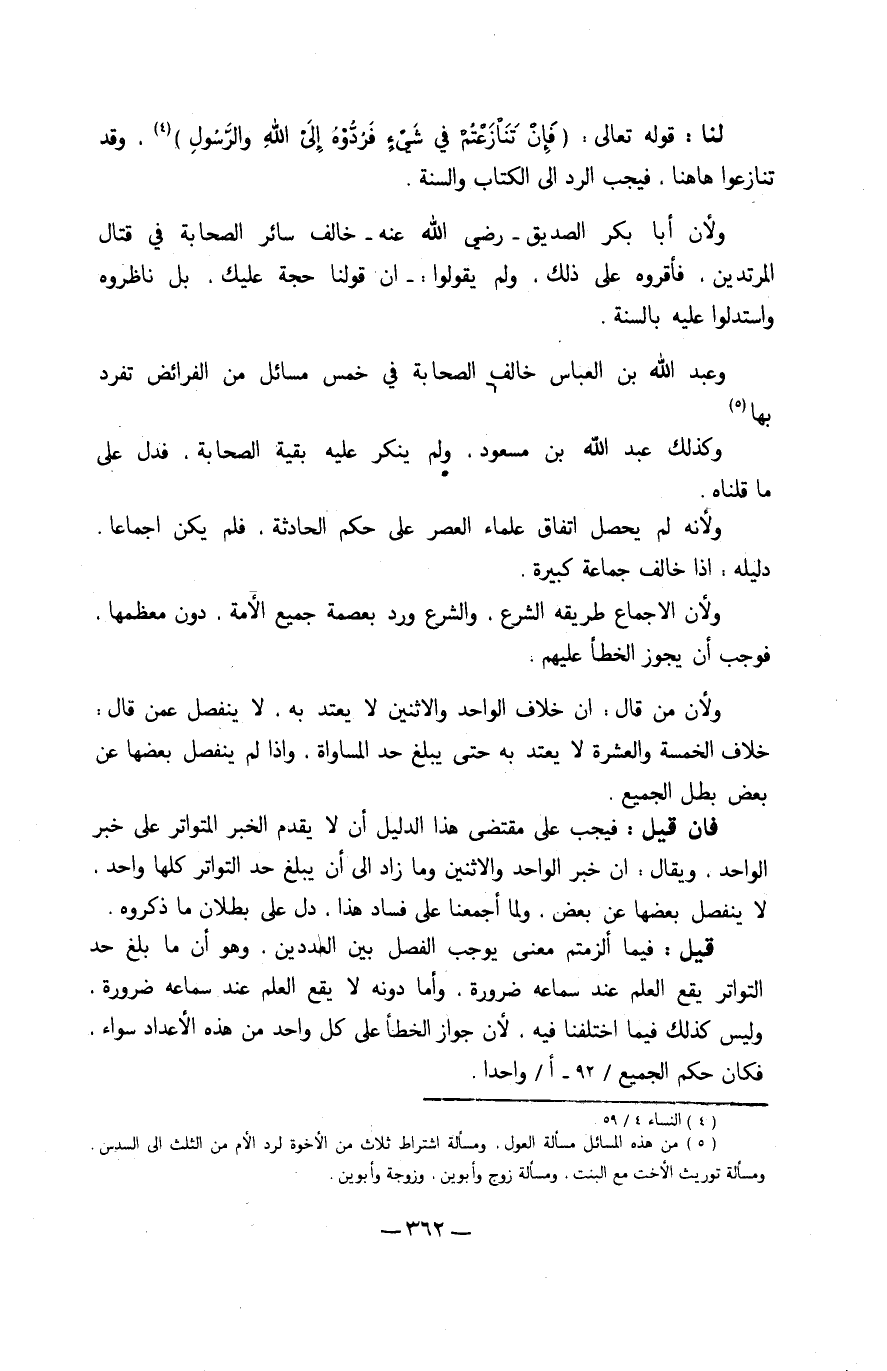 لنا : قوله تعالى : ( فَإِنْ تَنَاْزَعْتُمْ في شَيْءٍ فَرُدُّوْهُ إِلَىْ اللهِ والرَّسُولِ )(٤) . وقد
تنازعوا هاهنا . فيجب الرد الى الكتاب والسنة .
ولأن أبا بكر الصديق ـ رضي الله عنه ـ خالف سائر الصحابة في قتال
المرتدين . فأقروه على ذلك . ولم يقولوا : ـ ان قولنا حجة عليك . بل ناظروه
واستدلوا عليه بالسنة .
وعبد الله بن العباس خالف الصحابة في خمس مسائل من الفرائض تفرد
بها(٥)
وكذلك عبد الله بن مسعود . ولم ينكر عليه بقية الصحابة . فدل على
ما قلناه .
ولأنه لم يحصل اتفاق علماء العصر على حكم الحادثة . فلم يكن اجماعا .
دليله : اذا خالف جماعة كبيرة .
ولأن الاجماع طريقه الشرع . والشرع ورد بعصمة جميع الأمة . دون معظمها .
فوجب أن يجوز الخطأ عليهم .
ولأن من قال : ان خلاف الواحد والاثنين لا يعتد به . لا ينفصل عمن قال :
خلاف الخمسة والعشرة لا يعتد به حتى يبلغ حد المساواة . واذا لم ينفصل بعضها عن
بعض بطل الجميع .
فان قيل : فيجب على مقتضى هذا الدليل أن لا يقدم الخبر المتواتر على خبر
الواحد . ويقال : ان خبر الواحد والاثنين وما زاد الى أن يبلغ حد التواتر كلها واحد .
لا ينفصل بعضها عن بعض . ولما أجمعنا على فساد هذا . دل على بطلان ما ذكروه .
قيل : فيما ألزمتم معنى يوجب الفصل بين العددين . وهو أن ما بلغ حد
التواتر يقع العلم عند سماعه ضرورة . وأما دونه لا يقع العلم عند سماعه ضرورة .
وليس كذلك فيما اختلفنا فيه . لأن جواز الخطأ على كل واحد من هذه الأعداد سواء .
فكان حكم الجميع / ٩٢ ـ أ / واحدا .
( ٤ ) النساء ٤ / ٥٩
( ٥ ) من هذه المسائل مسألة العول . ومسألة اشتراط ثلاث من الأخوة لرد الأم من الثلث الى السدس .
ومسألة توريث الأخت مع البنت . ومسألة زوج وأبوين . وزوجة وأبوين .
— ٣٦٢ —